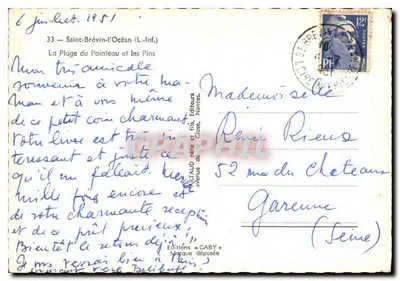 6 juillet 1951
33 - Saint-Brévin-l'Océan (L.-Inf.)
La Plage du Pointeau et les Pins
Mon très amicale
souvenir à votre ma-
man et à vous même
de ce petit coin charmant
Votre livre est très in-
teressant et juste ce
qu'il me fallait
mille fois encore et
de votre charmante reception
et de ce prêt precieux !
Bientôt le retour déjà !!
Je vous verrai bien à Paris,
Mademoiselle
Renée Rieux
52 rue du Chateau
Garenne
(Seine)
12F
RF
père et fils, Editeurs
avenue du Close, Nantes.
Editions « GABY »
Marque déposée